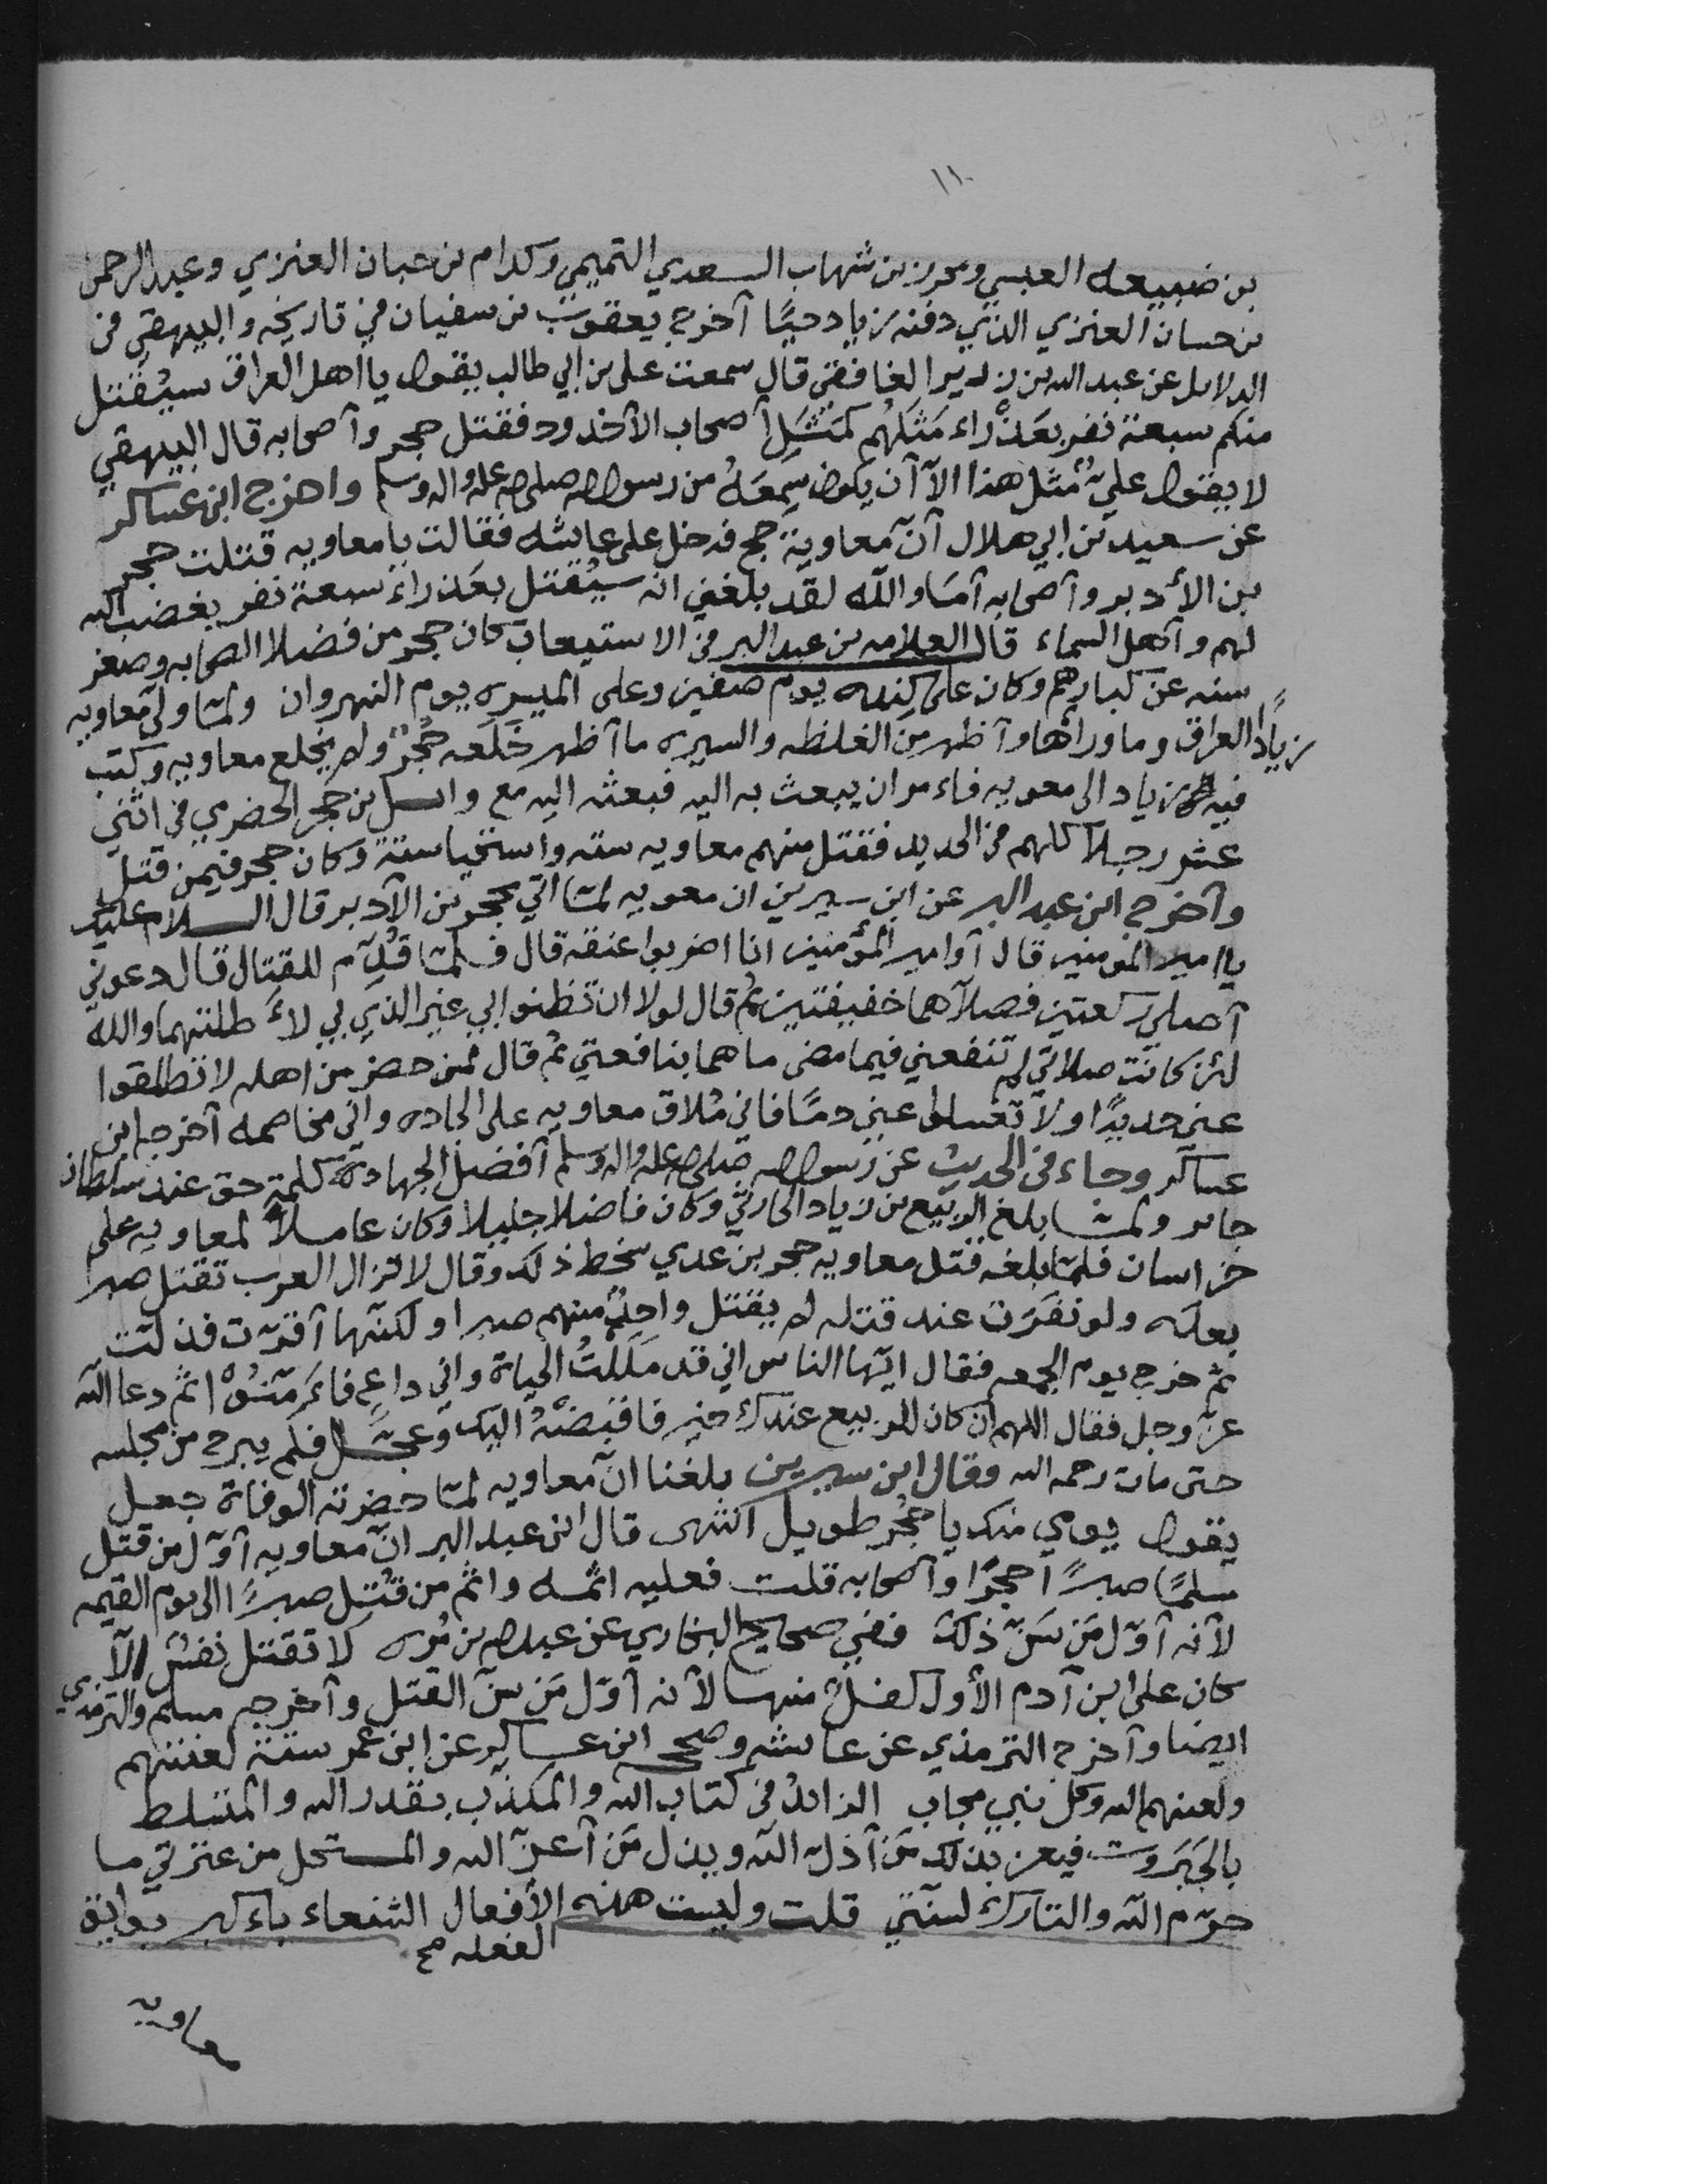 ١١٠
بن ضبيعه العبسي ومحرز بن شهاب السعدي التميمي وكدام بن حبان العنزي وعبد الرحمن
بن حسان العنزي الذي دفنه زياد حيًا أخرج يعقوب بن سفيان في تاريخه والبيهقي في
الدلايل عن عبد الله بن زرير الغافقي قال سمعت علي بن ابي طالب يقول يا اهل العراق سيُقتل
منكم سبعة نفر بعَذْراء مَثَلهُم كمَثَلِ أصحاب الأخدود فقتل حجر وأصحابه قال البيهقي
لا يقول عليٌّ مثل هذا الاّ أن يكون سَمِعَهُ من رسول الله صلى الله عليه واله وسلم واخرج ابن عساكر
عن سعيد بن ابي هلال أنّ معاوية حج فدخل على عايشه فقالت يا معاويه قتلت حجر
بن الأدبر وأصحابه أمَا والله لقد بلغني انه سيُقتل بعَذراء سبعة نفر يغضب الله
لهم وأهل السماء قال العلامه بن عبد البر في الاستيعاب كان حجر من فضلا الصحابه وصغر
سنه عن كبارهم وكان على كنده يوم صفين وعلى الميسره يوم النهروان ولمّا ولى معاويه
زيادًا العراق وما وراها وأظهر مِن الغلظه والسيره ما أظهر خَلَعه حُجْرٌ ولم يخلع معاويه وكتب
فيه زياد الى معويه فاءمر ان يبعث به اليه فبعثه اليه مع وايل بن حجر الحضرمي في اثني
عشر رجلًا كلهم في الحديد فقتل منهم معاويه سته واستحيا ستة وكان حجر فيمن قتل
وأخرج ابن عبد البر عن ابن سيرين ان معويه لمّا أتي بحجر بن الأدبر قال السلام عليك
يا امير المومنين قال أوامير المؤمنين انا اضربوا عنقه قال فلمّا قُدِّم للقتال قال دعوني
أصلي ركعتين فصلّاهما خفيفتين ثم قال لولا ان تظنوا بي غير الذي بي لأطلتهما والله
لئن كانت صلاتي لم تنفعني فيما مضى ما هما بنافعتي ثم قال لمن حضر من اهله لا تطلقوا
عني حديدًا ولا تغسلوا عني دمًا فاني مُلاق معاويه على الجاده واني مخاصمه أخرجه ابن
عساكر وجاء في الحديث عن رسول الله صلى الله عليه واله وسلم أفضل الجهاد كلمة حق عند سلطان
جاير ولمّا بلغ الربيع بن زياد الحارثي وكان فاضلا جليلا وكان عاملًا لمعاويه على
خراسان فلمّا بلغه قتل معاويه حجر بن عدي سخط ذلك وقال لا تزال العرب تقتل صبرا
بعدَه ولو نفَرَت عند قتله لم يقتل واحِدٌ منهم صبرا ولكنّها أقرّت فذلت
ثم خرج يوم الجمعه فقال ايّها الناس اني قد مَلَلتُ الحياة واني داعٍ فاءَمِّنُوْا ثم دعا الله
عز وجل فقال اللهم ان كان للربيع عندك خير فاقبضْهُ اليك وعجّل فلم يبرح من مجلسه
حتى مات رحمه الله وقال ابن سيرين بلغنا انّ معاويه لمّا حضرته الوفاة جعل
يقول يومي منك يا حجُر طويل انتهى قال ابن عبد البر انّ معاويه أوّل من قتل
مسلمًا صبرًا حجرًا وأصحابه قلت فعليه اثمه واثم من قُتِل صبرًا الى يوم القيمه
لأنه أوّل مَن سَنّ ذلك ففي صحيح البخاري عن عبد الله بن مُره لا تقتل نفسٌ الّا
كان على ابن آدم الأول كفلٌ منها لأنه أوّل مَن سنّ القتل وأخرجه مسلم والترمذي
ايضا وأخرج الترمذي عن عايشه وصححه ابن عساكر عن ابن عمر ستة لعنتهم
ولعنهم الله وكل نبي مجاب الزائدُ في كتاب الله والمكذّب بقدر الله والمتسلط
بالجَبَروت فيعز بذلك مَن أذلّ الله ويذل مَن أعزّ الله والمستحل من عترتي ما
حرّم الله والتارك لسنّتي قلت وليست هذه الأفعال الشنعاء باءكبر بوايق
الفعله صح
معاويه